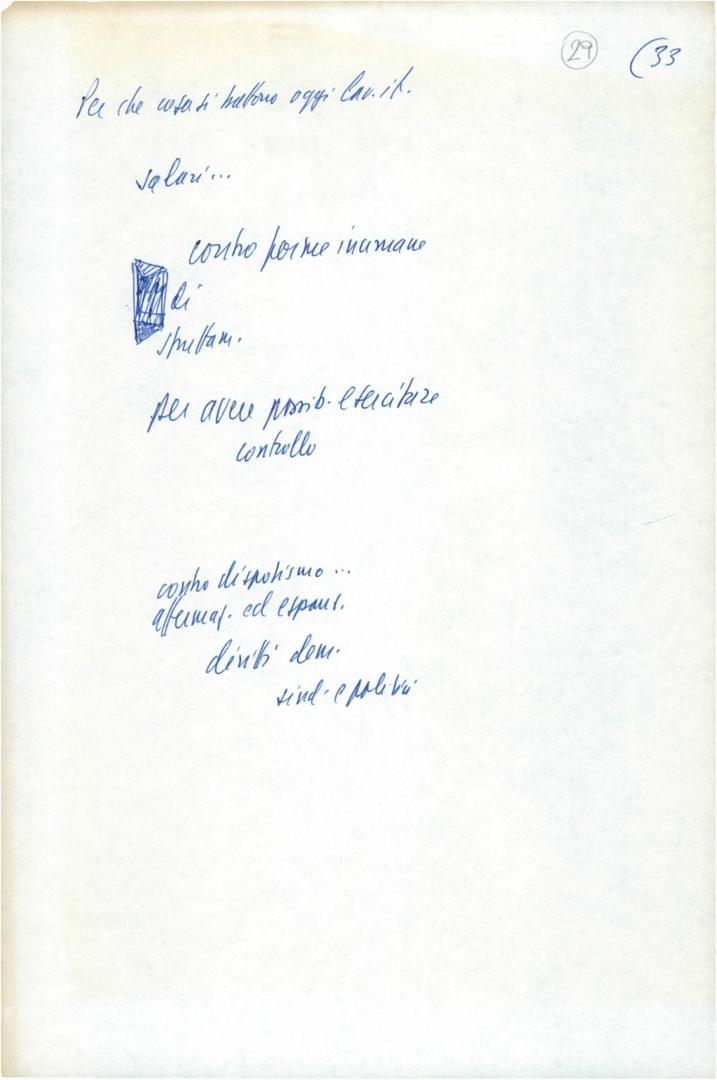 29 (33
Per che cosa si battono oggi lav. it.
salari...
contro forme inumane
di
sfruttam.
per avere possib. esercitare
controllo
contro dispotismo...
affermaz. ed espans.
diritti dem.
sind. e politici